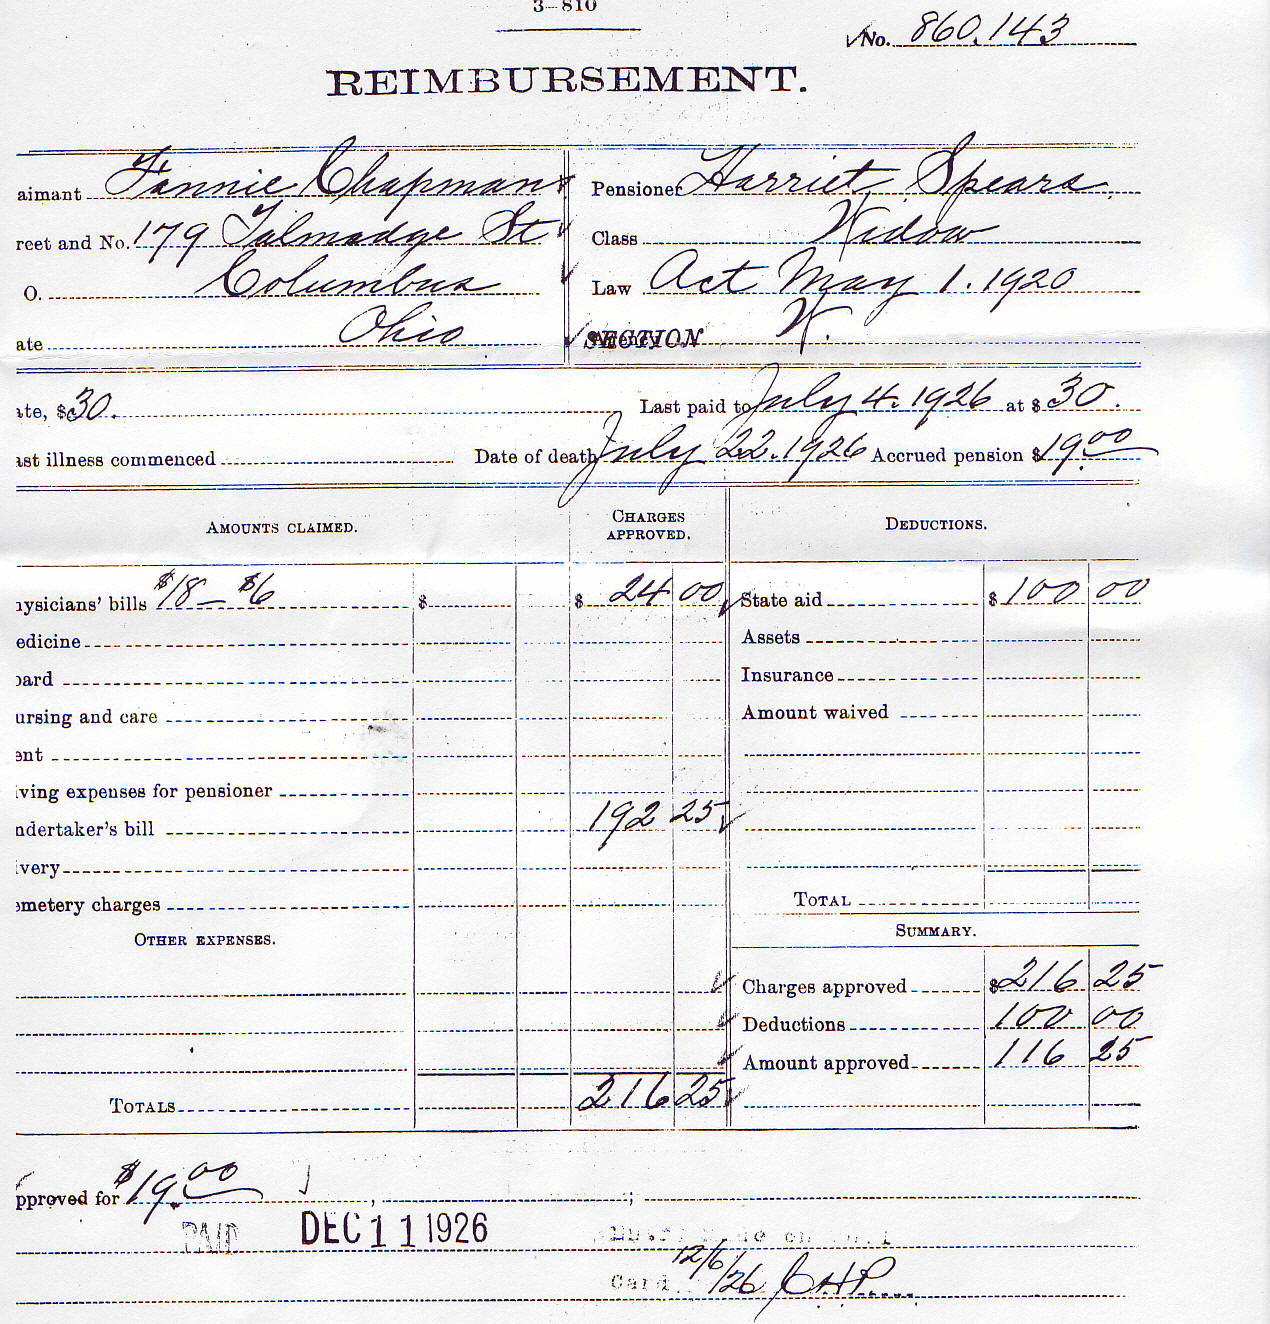 3—810
No. 860.143
REIMBURSEMENT.
aimant Fannie Chapman
Pensioner Harriet Spears
reet and No. 179 Talmadge St
Class Widow
O. Columbus
Law Act May 1. 1920
ate Ohio
SECTION W.
te, $30.
Last paid to July 4. 1926 at $30.
ast illness commenced
Date of death July 22. 1926 Accrued pension $19.00
AMOUNTS CLAIMED.
CHARGES APPROVED.
DEDUCTIONS.
ysicians' bills $18— $6 $ $ 24 00
State aid $100 00
edicine
Assets
oard
Insurance
ursing and care
Amount waived
ent
ving expenses for pensioner
ndertaker's bill 192 25
very
emetery charges
TOTAL
OTHER EXPENSES.
SUMMARY.
Charges approved $216 25
Deductions 100 00
Amount approved 116 25
TOTALS 216 25
pproved for $19.00
PAID DEC 11 1926
Card 12/6/26 C.H.P.